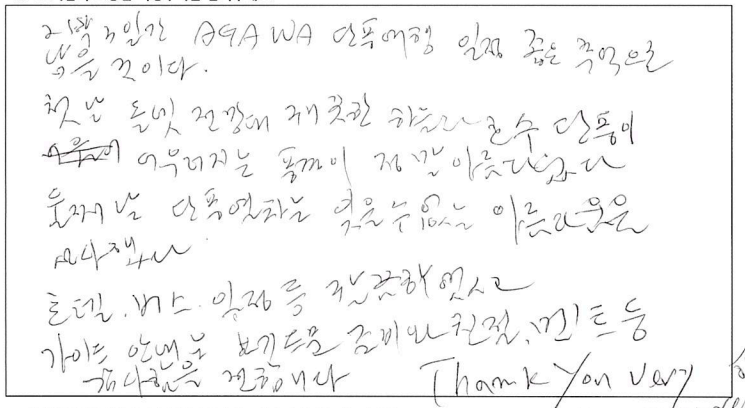 2박 3일간 AGAWA 단풍여행 일정 좋은 추억으로
남을 것이다.
첫날 돌빗 전망대 깨끗한 하늘과 호수 단풍이
어우러지는 풍경이 정말 아름다웠다
둘째날 단풍열차는 잊을 수 없는 아름다움을
호텔, 버스, 일정 등 깔끔하였고
가이드 안내는 보기드문 준비와 친절, 멘트 등
감사함을 전합니다 Thank You very